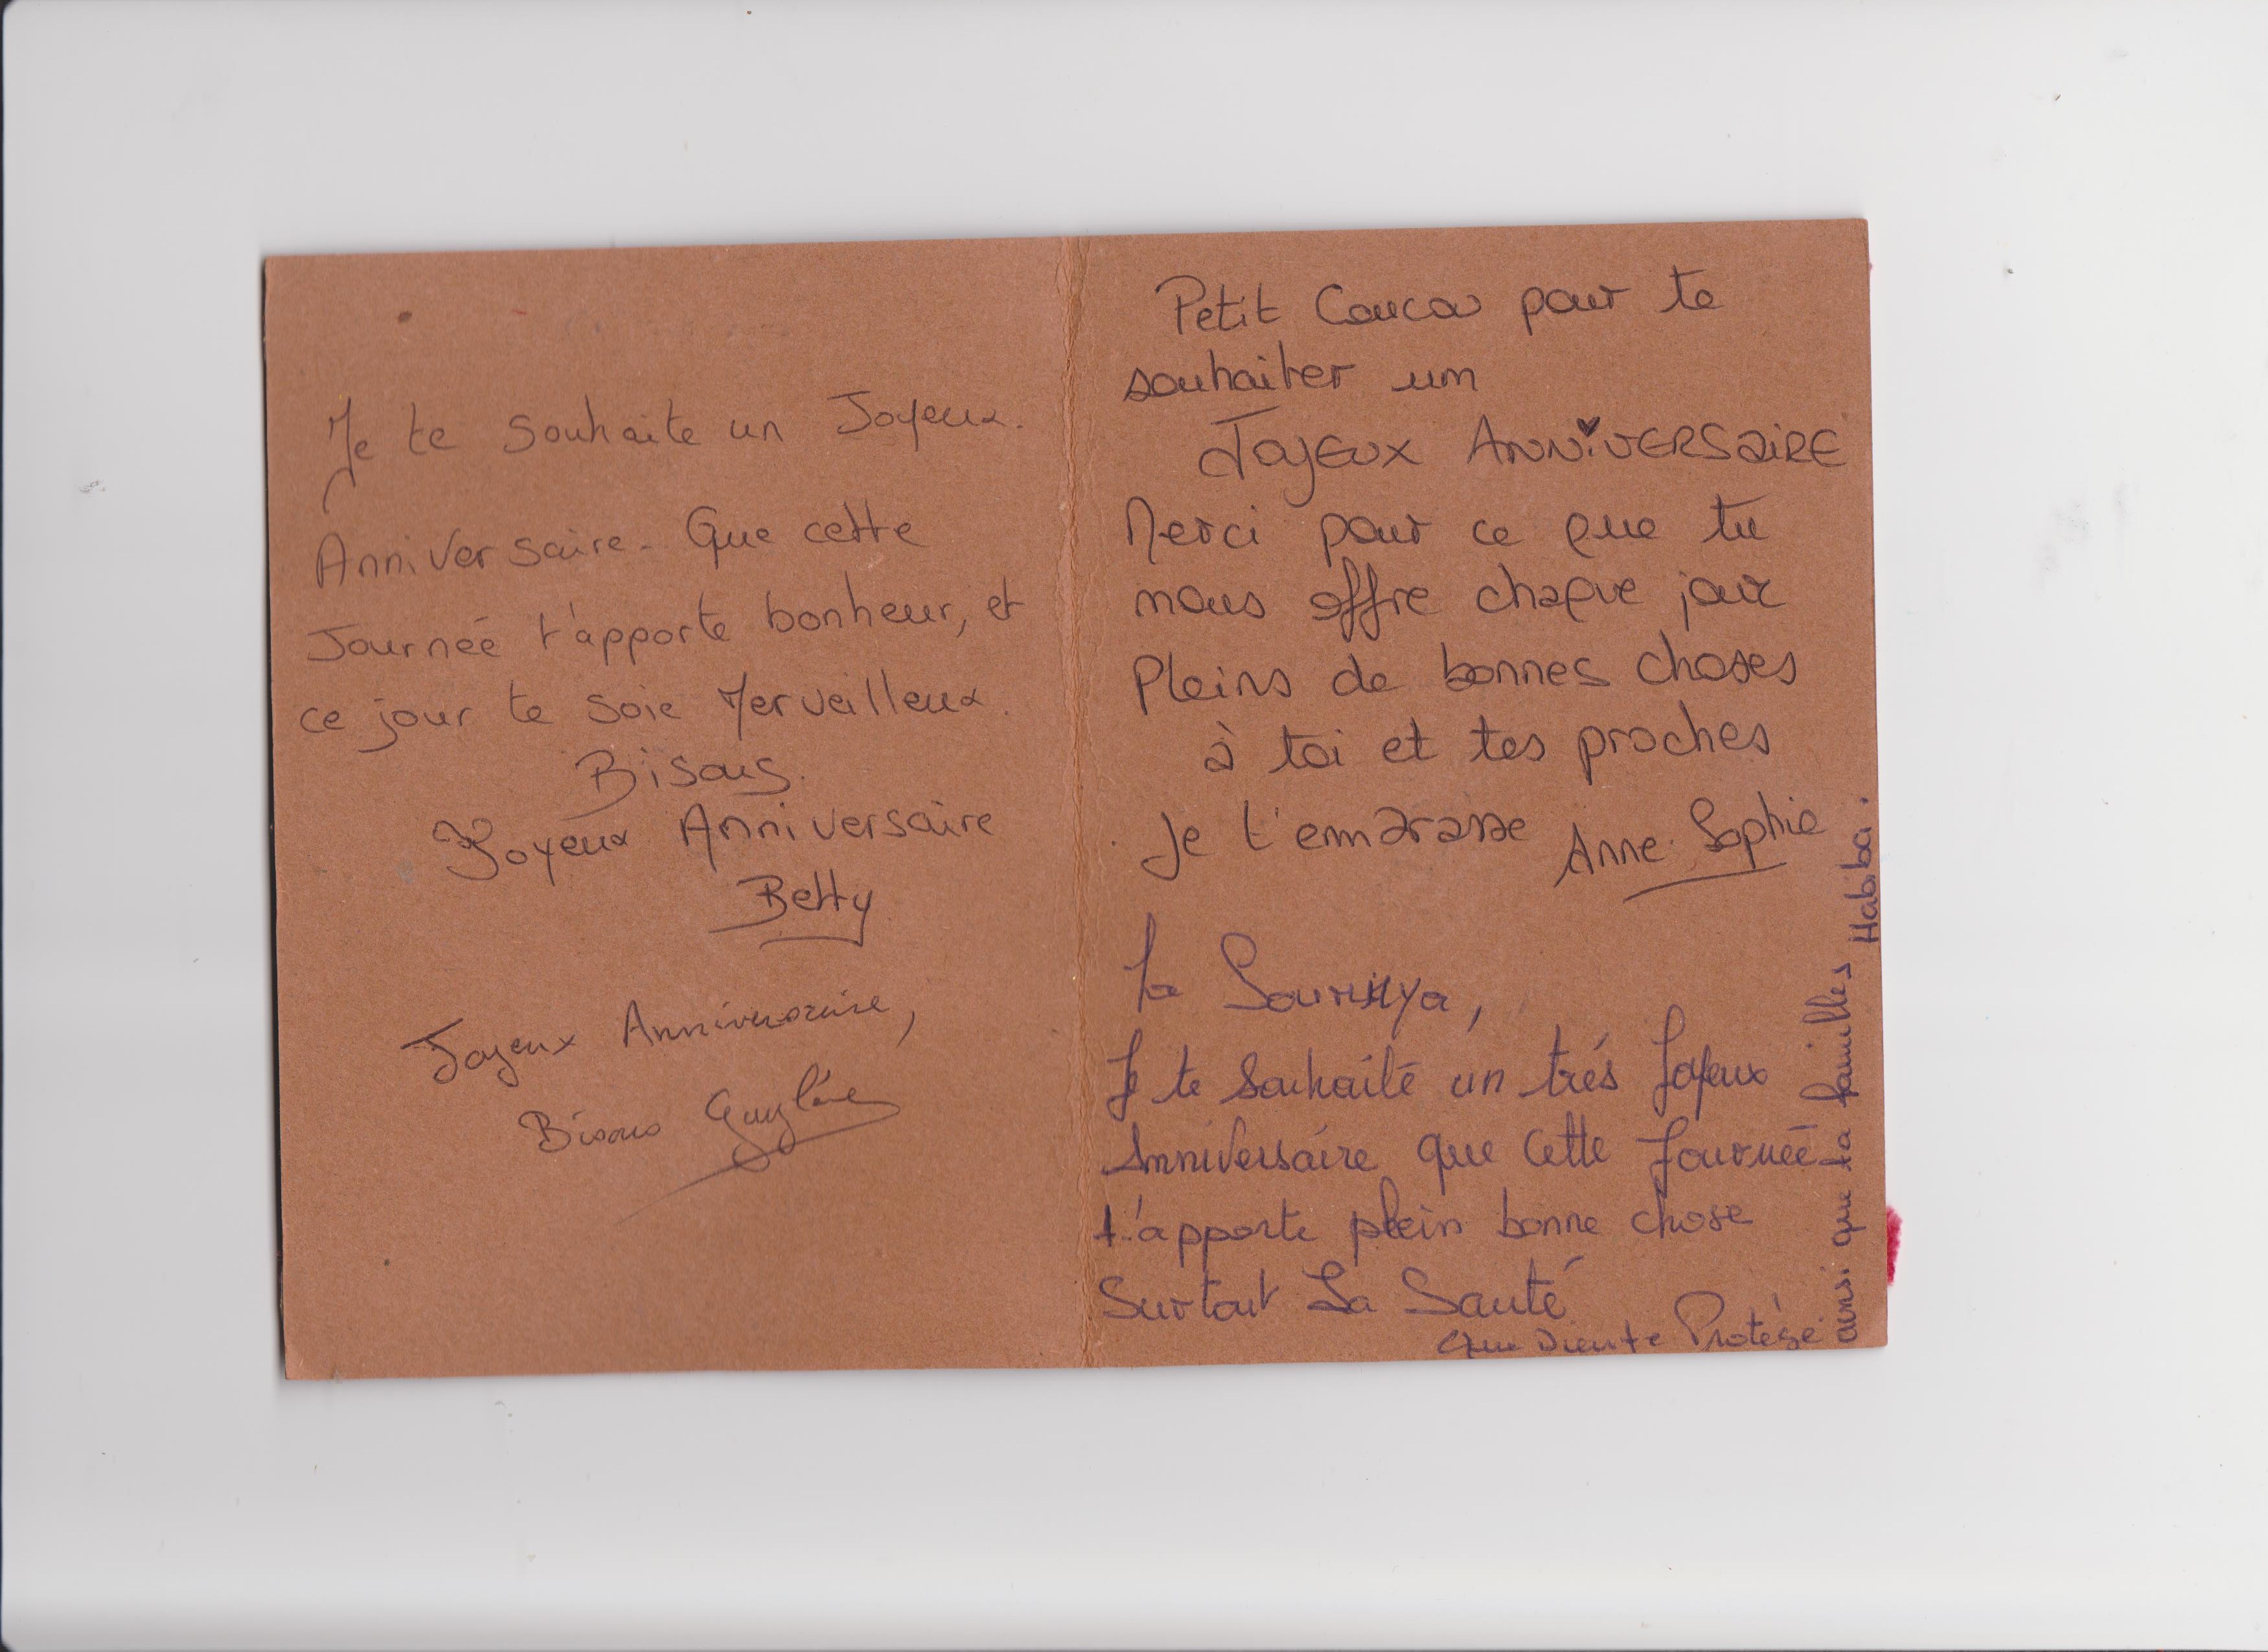 Je te souhaite un Joyeux.
Anniversaire. Que cette
Journée t'apporte bonheur, et
ce jour te soie Merveilleux.
Bisous.
Joyeux Anniversaire
Betty
Joyeux Anniversaire,
Bisous Guylène
Petit Coucou pour te
souhaiter um
JOYEUX ANNiVERSAIRE
Merci pour ce que tu
nous offre chaque jour
Pleins de bonnes choses
à toi et tes proches
Je t'embrasse Anne-Sophie
La Soumya,
Je te souhaité un trés Joyeux
Anniversaire que cette Journée
t'apporte plein bonne chose
Surtout La Santé
Que Dieu te Protège
ainsi que ta familles
Habiba.